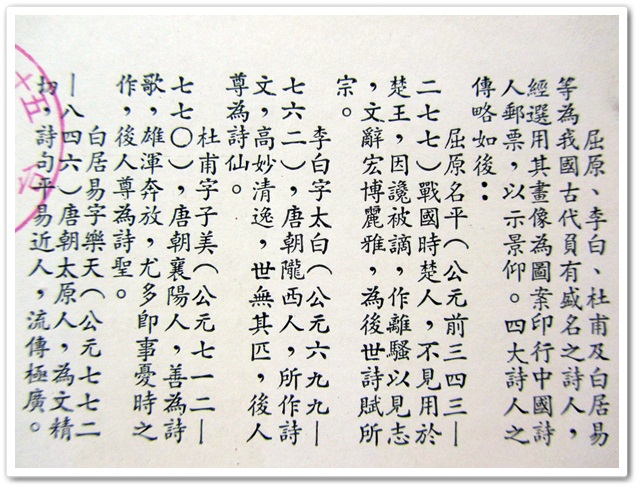 屈原、李白、杜甫及白居易
等為我國古代負有盛名之詩人，
經選用其畫像為圖案印行中國詩
人郵票，以示景仰。四大詩人之
傳略如後：
屈原名平（公元前三四三—
二七七）戰國時楚人，不見用於
楚王，因讒被謫，作離騷以見志
，文辭宏博麗雅，為後世詩賦所
宗。
李白字太白（公元六九九—
七六二），唐朝隴西人，所作詩
文，高妙清逸，世無其匹，後人
尊為詩仙。
杜甫字子美（公元七一二—
七七〇），唐朝襄陽人，善為詩
歌，雄渾奔放，尤多即事憂時之
作，後人尊為詩聖。
白居易字樂天（公元七七二
—八四六）唐朝太原人，為文精
切，詩句平易近人，流傳極廣。
十五